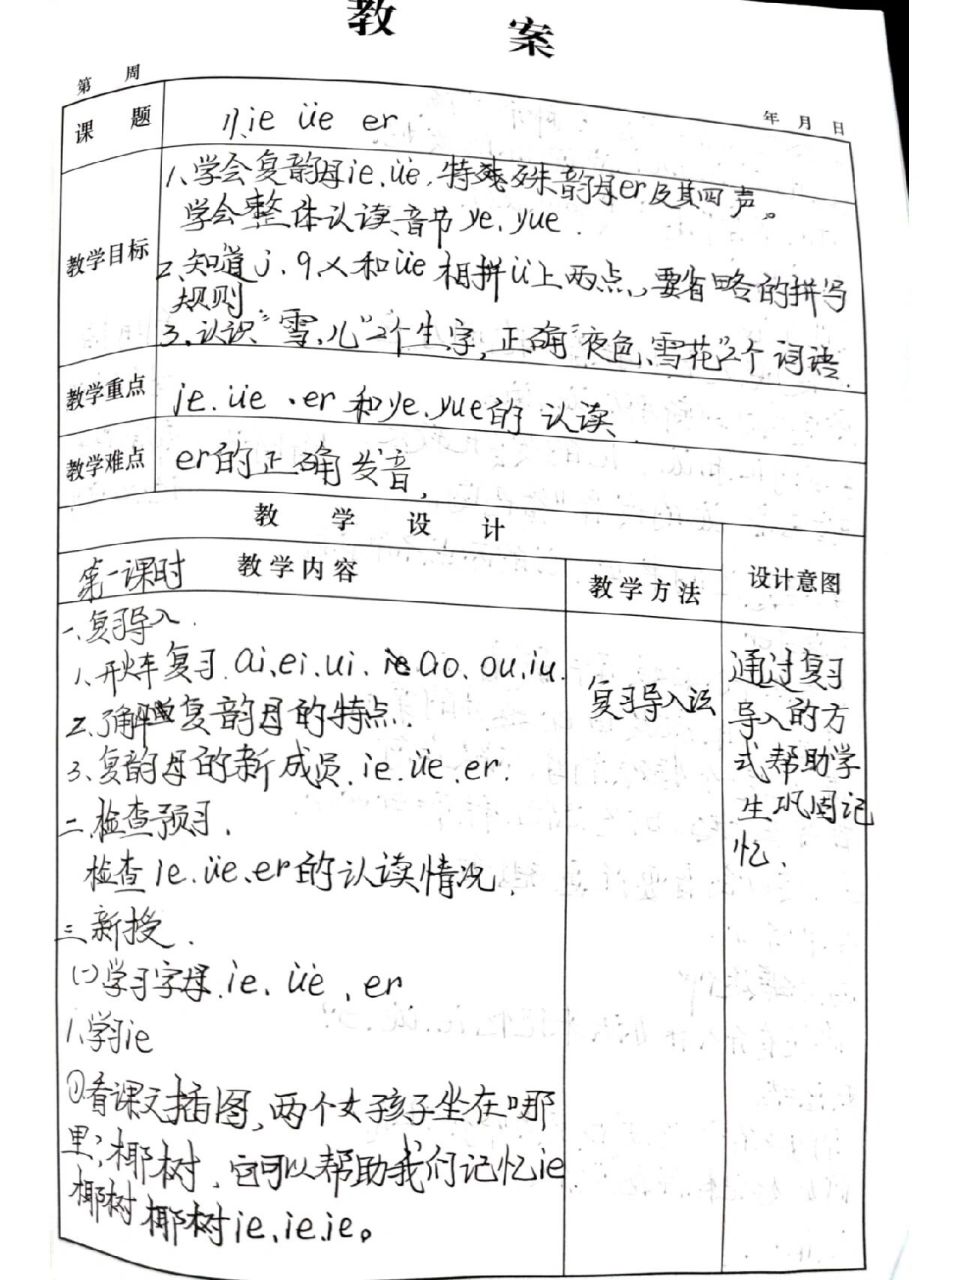 教 案
第 周
年 月 日
课 题
11、ie üe er
教学目标
1、学会复韵母ie、üe,特殊韵母er及其四声。
学会整体认读音节ye、yue.
2、知道j、q、x和üe相拼ü上两点,要省略的拼写
规则
3、认识“雪、儿”2个生字,正确“夜色、雪花”2个词语.
教学重点
ie、üe、er和ye、yue的认读.
教学难点
er的正确发音,
教 学 设 计
第一课时 教学内容
教学方法
设计意图
一、复习导入.
1、开火车复习.ai、ei、ui、ao、ou、iu.
2、了解复韵母的特点.
3、复韵母的新成员.ie、üe、er.
二、检查预习.
检查ie、üe、er的认读情况.
三、新授.
(一)学习字母.ie、üe、er
1、学习ie
①看课文插图,两个女孩子坐在哪
里?椰树,它可以帮助我们记忆ie
椰树椰树ie、ie、ie。
复习导入法
通过复习
导入的方
式帮助学
生巩固记
忆.